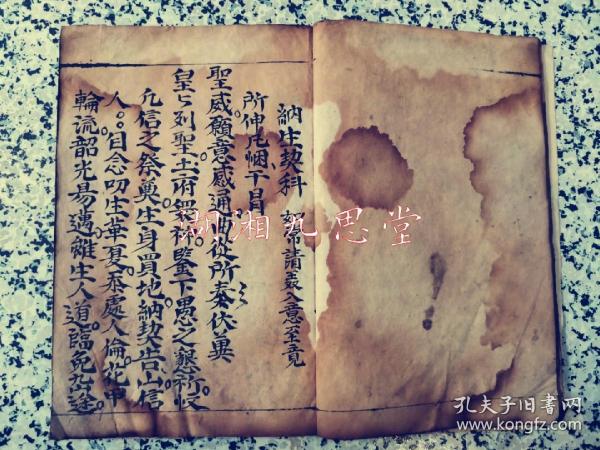 納生契科 請表入意至竟
所伸凡悃干冒
聖威願意感通 從所奏伏冀
皇々列聖土府 鑒下愚之懇祈收
凡信之祭奠生身買地納契告山信
人。。自念叨生華夏忝處人倫花甲
輪流韶光易邁雖生人道臨免 途
湖湘九思堂
孔夫子旧书网
www.kongfz.com